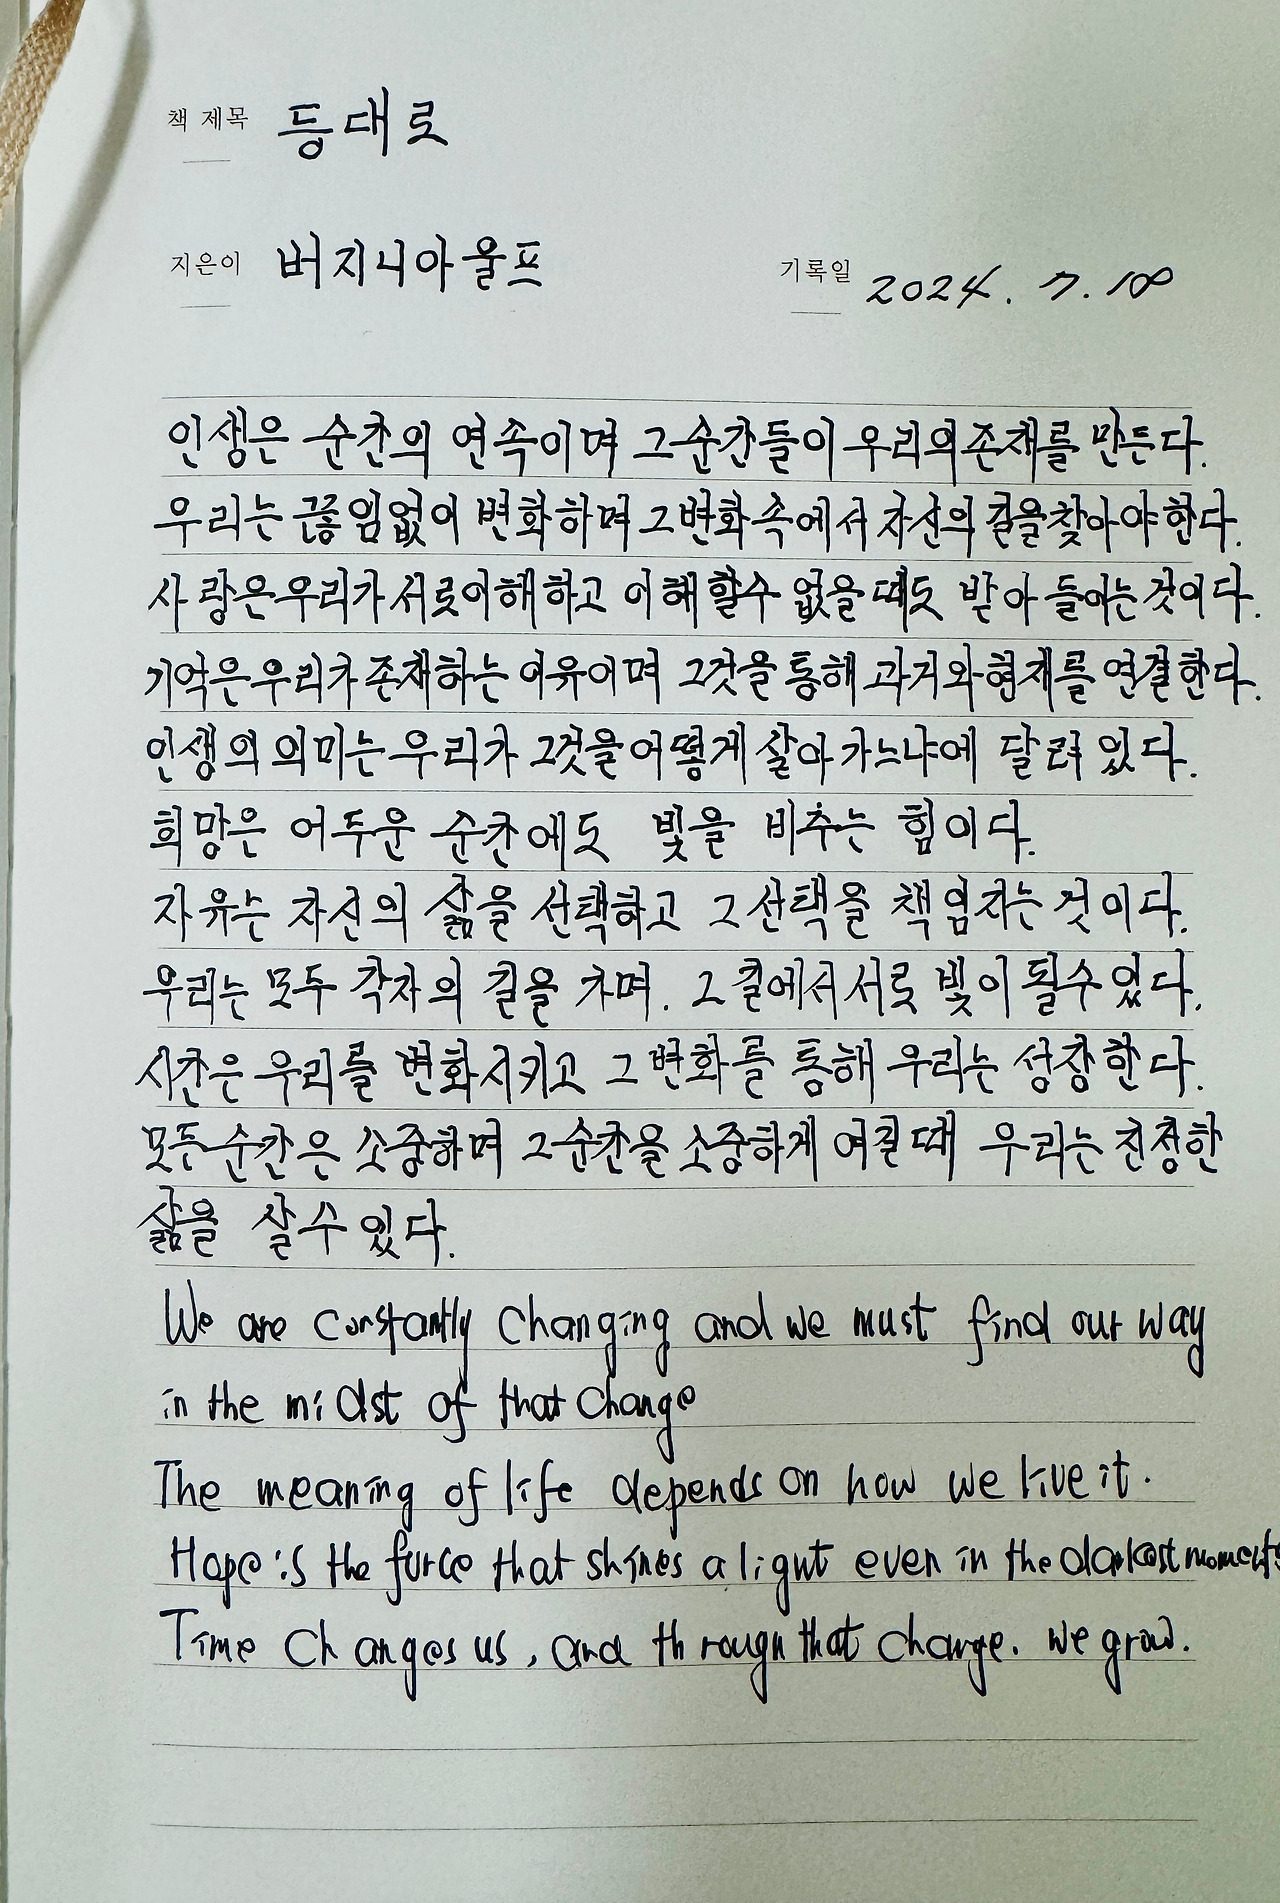 책 제목 등대로
지은이 버지니아 울프
기록일 2024. 7. 18
인생은 순간의 연속이며 그 순간들이 우리의 존재를 만든다.
우리는 끊임없이 변화하며 그 변화 속에서 자신의 길을 찾아야 한다.
사랑은 우리가 서로 이해하고 이해할 수 없을 때도 받아들이는 것이다.
기억은 우리가 존재하는 이유이며 그것을 통해 과거와 현재를 연결한다.
인생의 의미는 우리가 그것을 어떻게 살아가느냐에 달려 있다.
희망은 어두운 순간에도 빛을 비추는 힘이다.
자유는 자신의 삶을 선택하고 그 선택을 책임지는 것이다.
우리는 모두 각자의 길을 가며. 그 길에서 서로 빛이 될 수 있다.
시간은 우리를 변화시키고 그 변화를 통해 우리는 성장한다.
모든 순간은 소중하며 그 순간을 소중하게 여길 때 우리는 진정한
삶을 살 수 있다.
We are constantly changing and we must find our way
in the midst of that change
The meaning of life depends on how we live it.
Hope is the force that shines a light even in the darkest moments
Time changes us, and through that change. we grow.